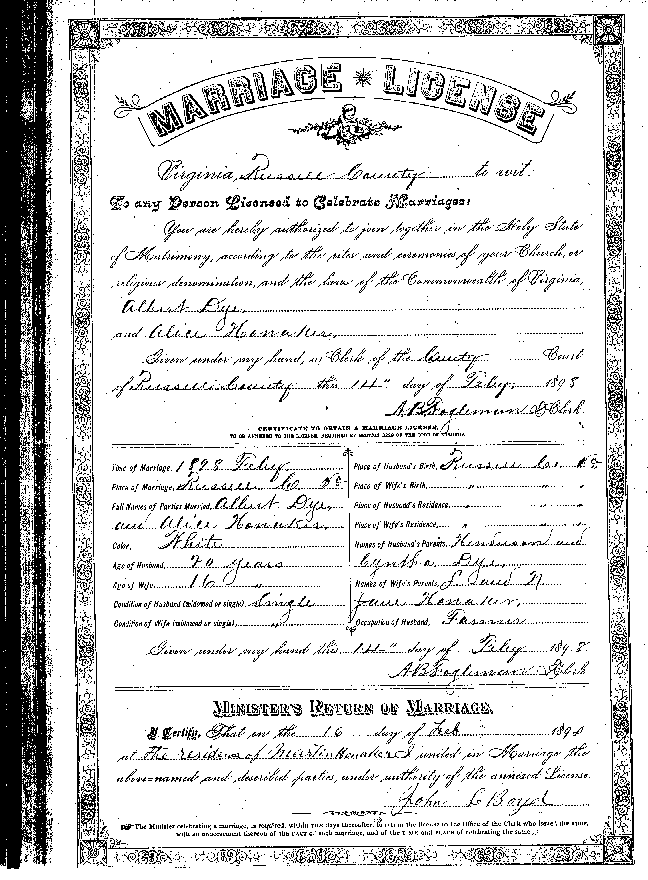 MARRIAGE LICENSE
Virginia, Russell County to wit:
To any Person Licensed to Celebrate Marriages:
You are hereby authorized to join together in the Holy State
of Matrimony, according to the rites and ceremonies of your Church, or
religious denomination, and the laws of the Commonwealth of Virginia,
Albert Dye,
and Alice Honaker,
Given under my hand, as Clerk of the County Court
of Russell County this 14" day of Feby, 1898
A B Fogleman Clerk
CERTIFICATE TO OBTAIN A MARRIAGE LICENSE,
Time of Marriage, 1898 Feby
Place of Marriage, Russell Co Va
Full Names of Parties Married, Albert Dye,
and Alice Honaker,
Color, White
Age of Husband, 20 years
Age of Wife, 16 "
Condition of Husband (widowed or single), Single
Condition of Wife (widowed or single), "
Place of Husband's Birth, Russell Co. Va
Place of Wife's Birth, " " "
Place of Husband's Residence, " " "
Place of Wife's Residence, " " "
Names of Husband's Parents, Henderson and
Cyntha Dye,
Names of Wife's Parents, and N
Jane Honaker,
Occupation of Husband, Farmer
Given under my hand this 14" day of Feby 1898
A B Fogleman Clerk
MINISTER'S RETURN OF MARRIAGE.
I Certify, That on the 16 day of Feb 189
at the residence of Martin Honaker I united in Marriage the
above-named and described parties, under authority of the annexed License.
John Boyd
The Minister celebrating a marriage, is required, within TEN days thereafter, to return the license to the Office of the Clerk who issued the same,
with an endorsement thereon of the FACT of such marriage, and of the TIME and PLACE of celebrating the same.